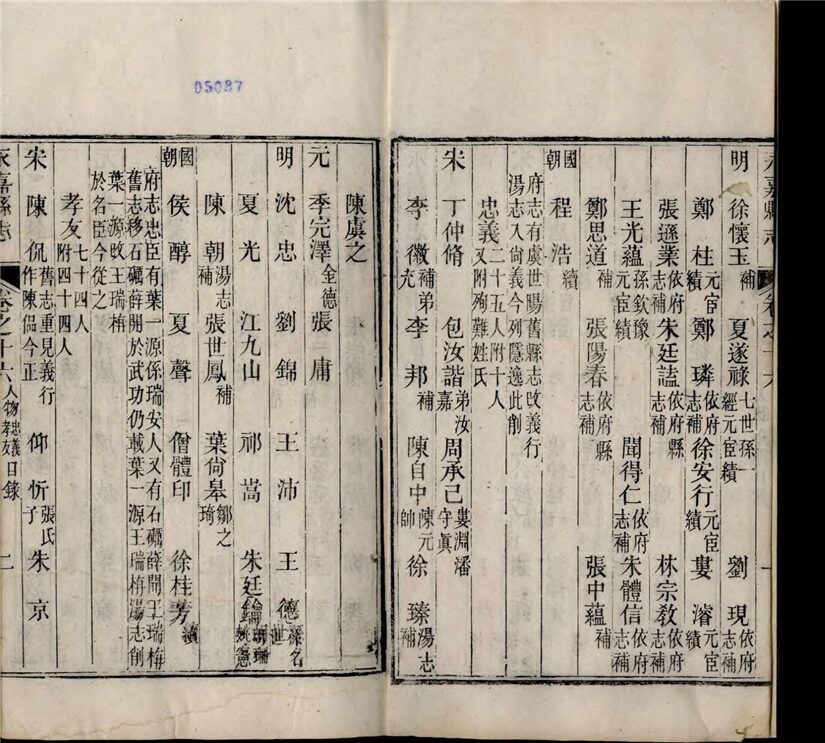 05087
明 徐懷玉補 夏遂祿七世孫一經元宦績 劉現依府志補
鄭桂元宦績 鄭璘依府志補 徐安行元宦績 婁濬元宦績
張遜業依府志補 朱廷諡依府縣志補 林宗教依府志補
王光蘊孫欽豫元宦績 聞得仁依府志補 朱體信依府志補
鄭思道補 張陽春依府縣志補 張中蘊補
國朝 程浩續
府志有虞世陽舊縣志改義行
湯志入尚義今列隱逸此削
忠義二十五人附十人
又附殉難姓氏
宋 丁仲脩 包汝諧弟汝嘉 周承己婁淵潘守眞
李徽補弟充 李邦補 陳自中陳元帥 徐臻湯志補
陳虞之
元 季完澤全德 張庸
明 沈忠 劉錦 王沛 王德蘇名世
夏光 江九山 祁嵩 朱廷鑰胡瑞姚憲
陳朝湯志補 張世鳳補 葉尚皋鄒之琦
國朝 侯醇 夏聲 僧體印 徐桂芳續
府志忠臣有葉一源係瑞安人又有石礪薛開王瑞栴
舊志移石礪薛開於武功仍載葉一源王瑞栴湯志削
葉一源改王瑞栴
於名臣今從之
孝友七十四人附四十四人
宋 陳侃舊志重見義行作陳偘今正 仰忻子張氏 朱京
永嘉縣志 卷之十六人物忠義孝友目錄 二